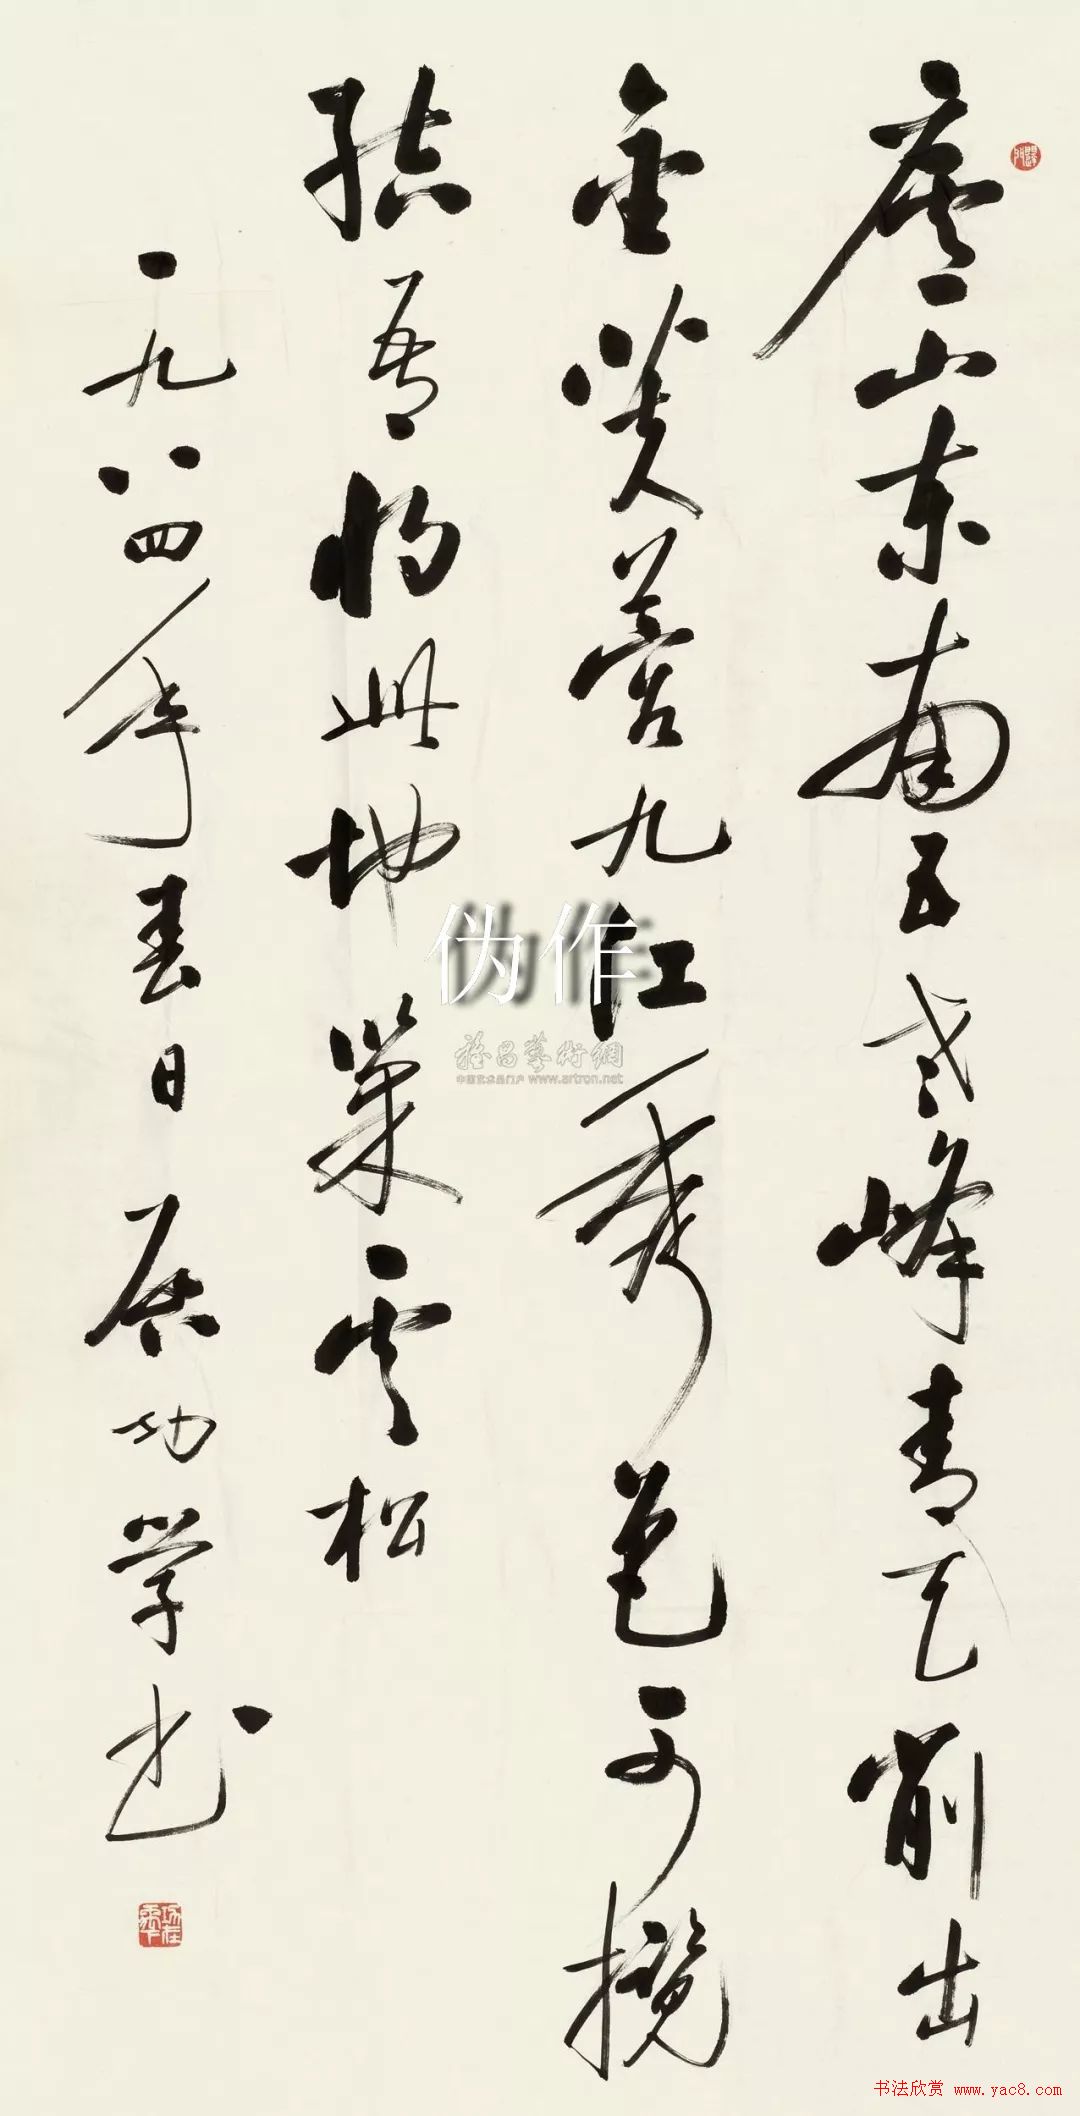 廬山東南五老峰青天削出
金芙蓉九江秀色可攬
結吾將此地巢雲松
一九八四年春日启功學書
伪作
雅昌藝術網
中国艺术品门户 www.artron.net
书法欣赏 www.yac8.com